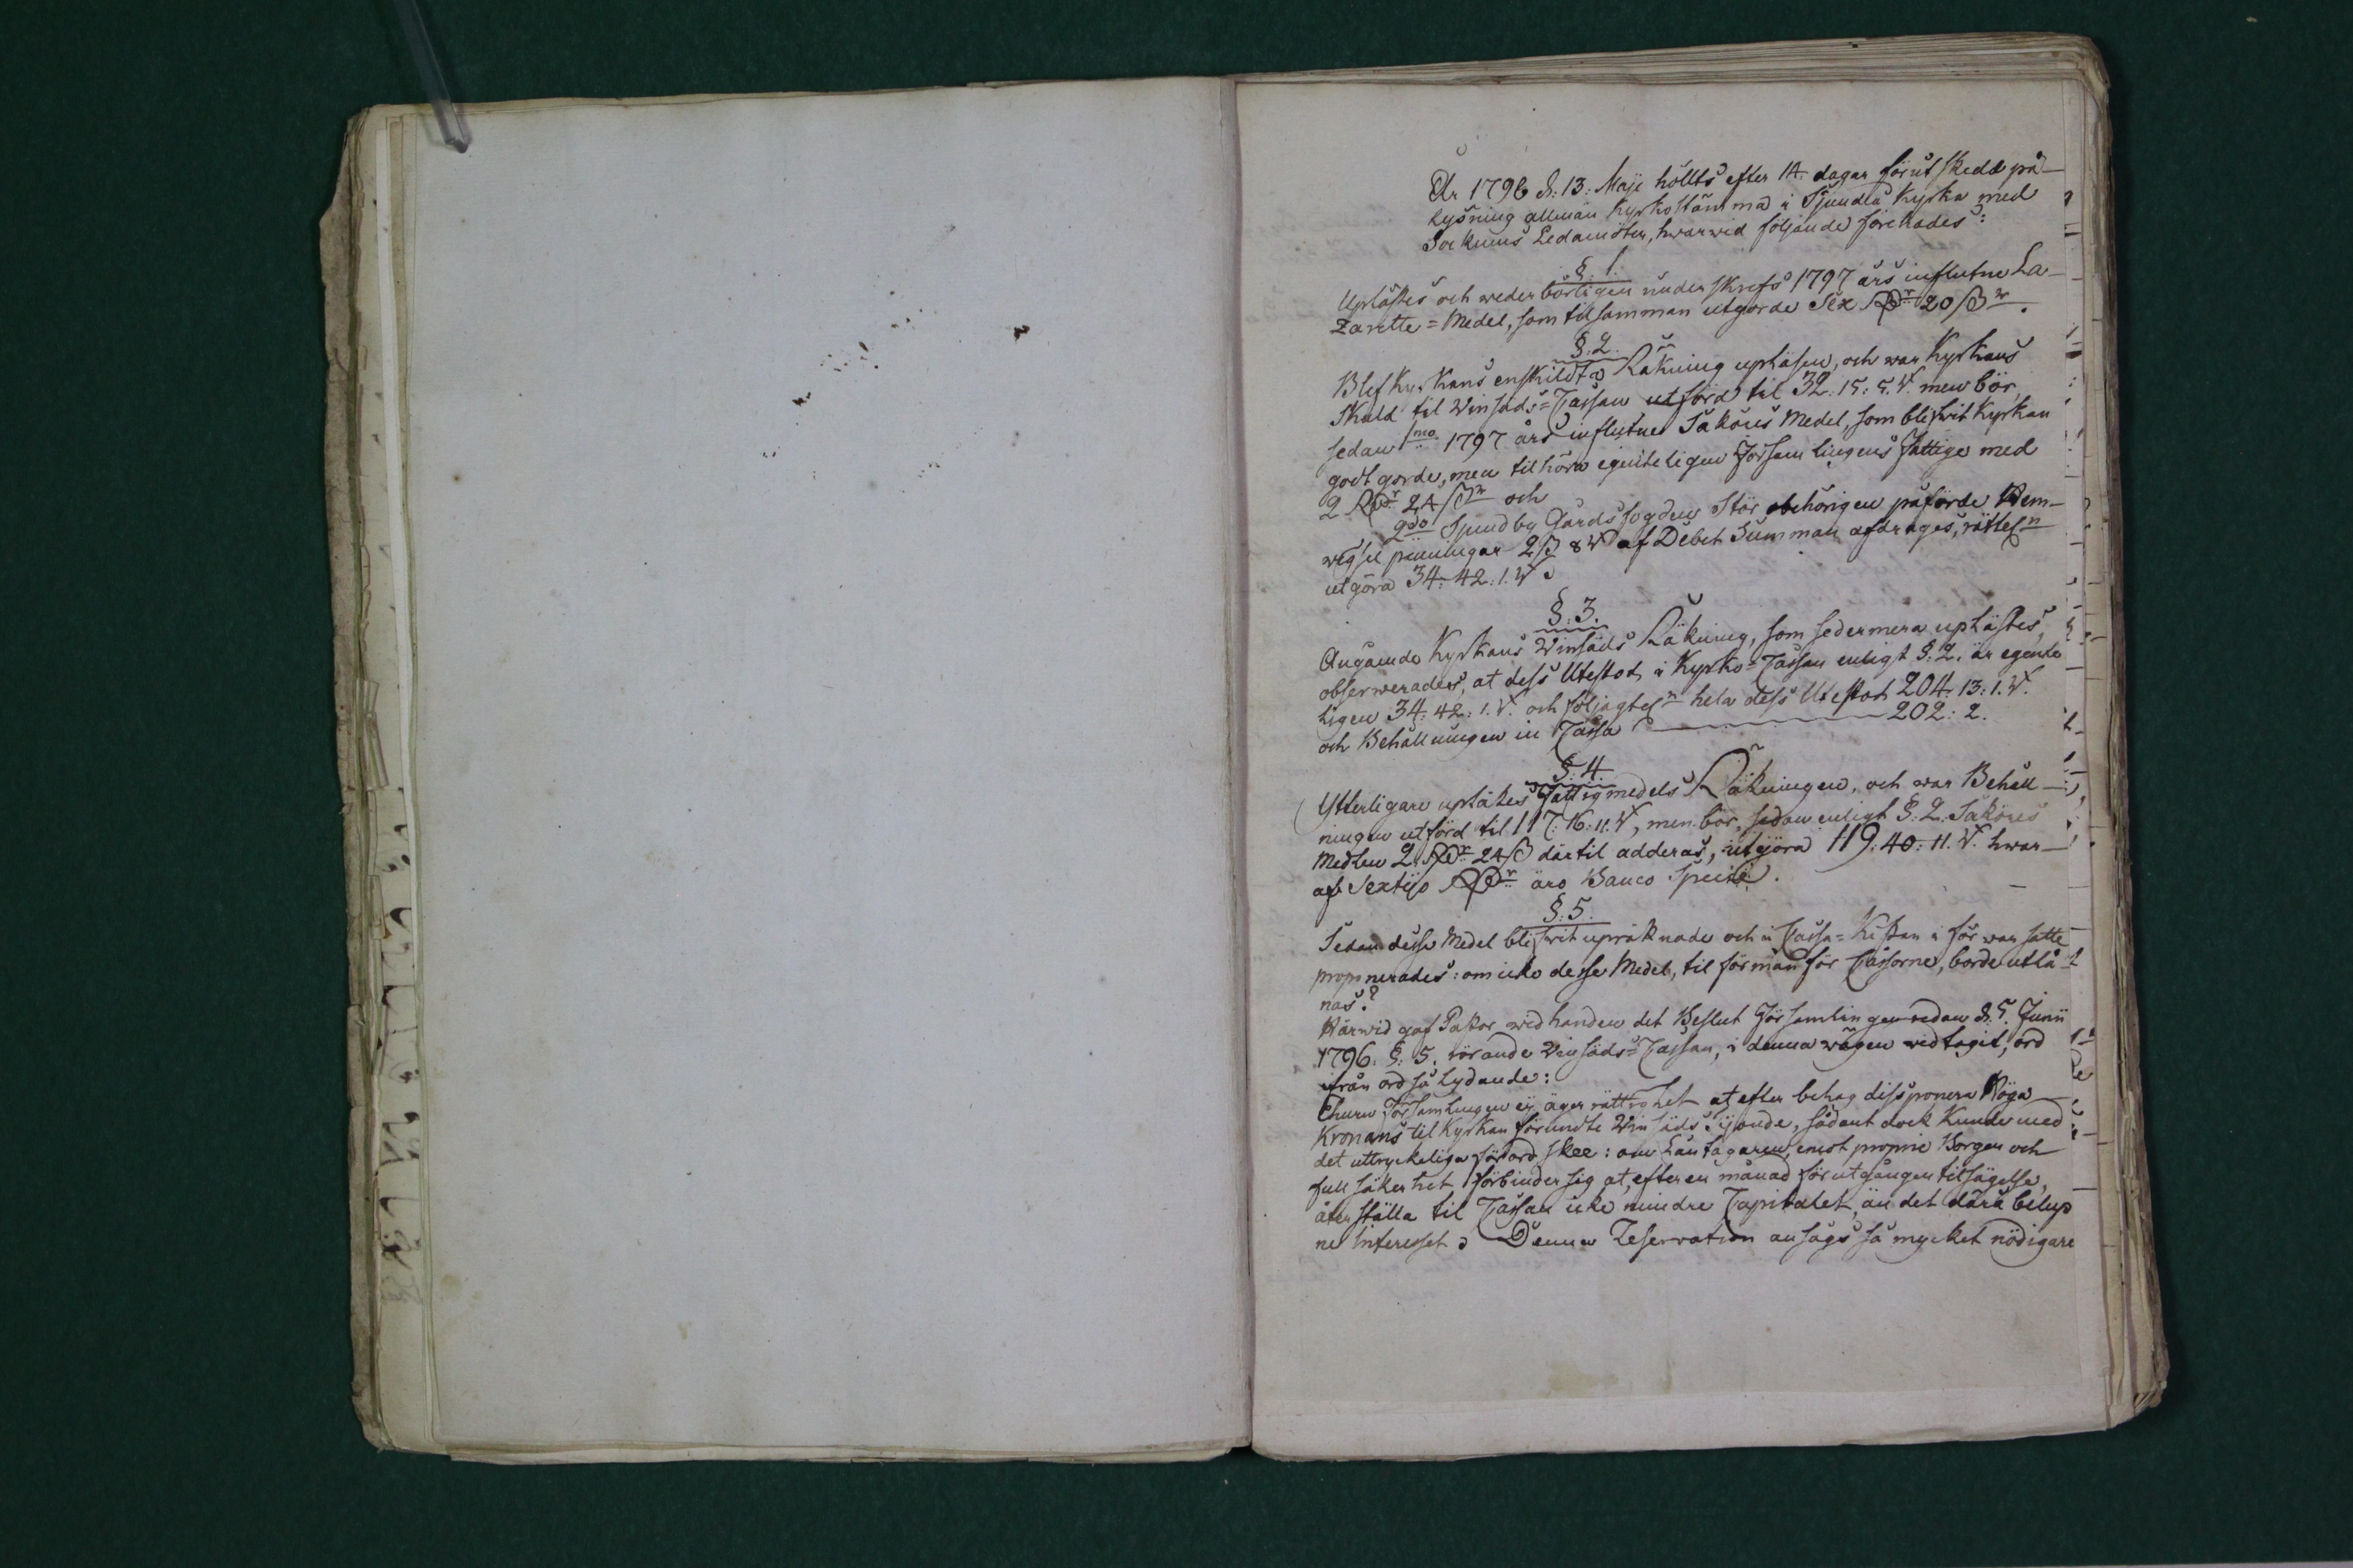 År 1798 d. 13. Maji hölts efter 14. dagar förut skedd på-
lysning allmän Kyrkostämma i Sjundeå Kyrka med
Socknens Ledamöter, hwarwid följande förehades:
§. 1.
Uplästes och wederbörligen underskrefs 1797 års influtne La-
zaretts=Medel, som tilsamman utgorde Sex Rdr 20 ß.
§. 2.
Blef Kyrkans enskildta Räkning upläsen, och war Kyrkans
skuld til Winsäds=Cassan utförd til 32. 15: 5. men bör,
sedan 1mo 1797 års influtne Saköres Medel, som blifwit Kyrkan
godtgorde, men tilhöra egenteligen Församlingens Fattige med
2 Rdr 24 ß och
2do Svidby Gårdsfogdens Stör obehörigen påförde Wem-
penningar 2 ß 8 af Debet Summan afdrages, rättel.n
utgöra 34. 42. 1.
§. 3.
Angående Kyrkans Winsäds Räkning, som sedermera uplästes,
observerades, at dess Utestod i Kyrko=Cassan enligt §. 2. är egente
ligen 34. 42: 1. och följagtel.n hela dess Utestod 204. 13: 1.
och Behållningen in Cassa 202: 2.
§. 4.
Ytterligare uplästes Fattigmedels Räkningen, och war Behåll-
ningen utförd til 117. 16. 11., men bör, sedan enligt §. 2. Saköres
Medlen 2. Rdr 24 ß därtil adderas, utgöra 119. 40. 11. hwar-
af Sextijo Rdr äro Banco Specie.
§. 5.
Sedan desse Medel blifwit upräknade och i Cassa=Kistan i förwar satte
proponerades: om icke desse Medel, til förmån för Cassorne, borde utlå
nas?
Härwid gaf Pastor wid handen det Beslut Församlingen redan d. 5. Junii
1796. §. 5. rörande Winsäds=Cassan, i denna wägen widtagit, ord
ifrån ord så lydande:
Ehuru Församlingen ej äger rättighet at efter behag dissponera Höga
Kronans til Kyrkan förundte Winsäds Tijonde, sådant dock kunde med
det uttryckeliga förord skee: om Låntagaren, emot proprie Borgen och
full säkerhet förbinder sig at, efter en månad förutgången tilsägelse,
återställa til Cassan icke mindre Capitalet, än det därå belup
ne Interesset. Denna Reservation ansågs så mycket nödigare